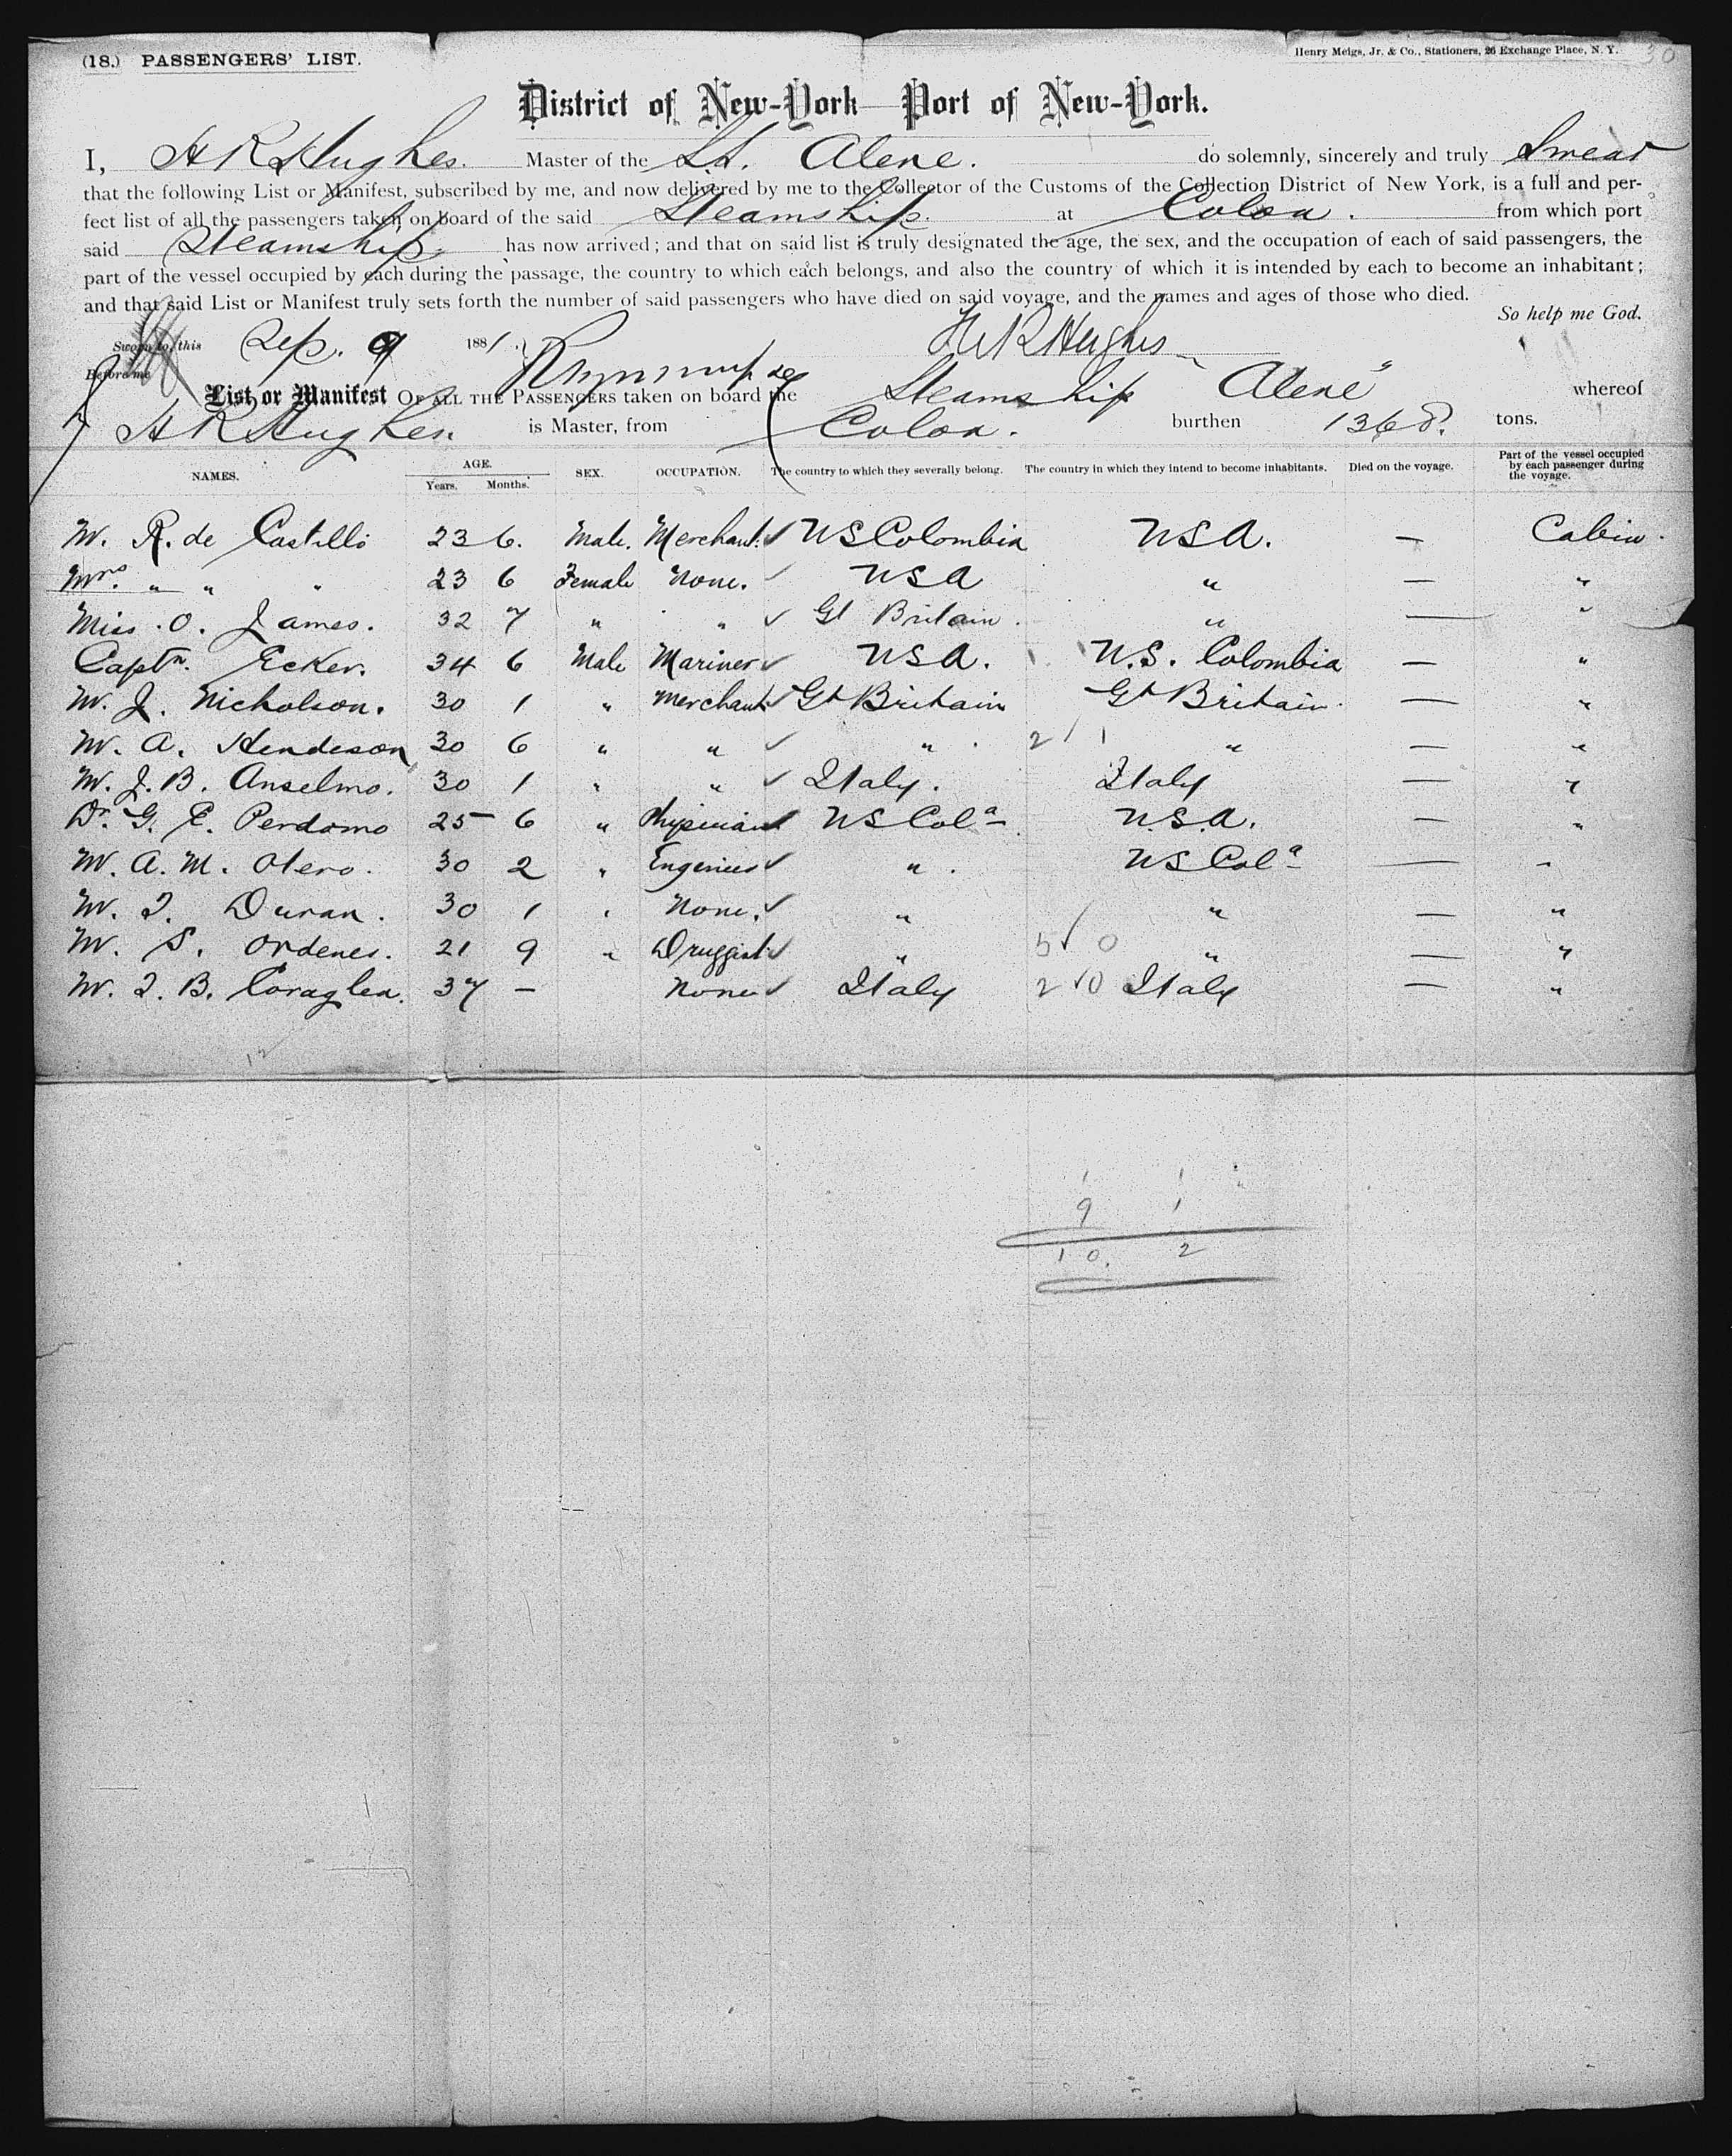 (18.) PASSENGERS' LIST.
Henry Meigs, Jr. & Co., Stationers, 26 Exchange Place, N. Y. 30
District of New-York—Port of New-York.
I, H R Hughes. Master of the St. Alene. do solemnly, sincerely and truly Swear
that the following List or Manifest, subscribed by me, and now delivered by me to the Collector of the Customs of the Collection District of New York, is a full and per-
fect list of all the passengers taken on board of the said Steamship. at Colon. from which port
said Steamship. has now arrived; and that on said list is truly designated the age, the sex, and the occupation of each of said passengers, the
part of the vessel occupied by each during the passage, the country to which each belongs, and also the country of which it is intended by each to become an inhabitant;
and that said List or Manifest truly sets forth the number of said passengers who have died on said voyage, and the names and ages of those who died.
So help me God.
Sworn to, this Sep. 9 1881. H R Hughes
Before me
List or Manifest OF ALL THE PASSENGERS taken on board the Steamship "Alene" whereof
H R Hughes. is Master, from Colon. burthen 1368. tons.
NAMES. AGE. Years. Months. SEX. OCCUPATION. The country to which they severally belong. The country in which they intend to become inhabitants. Died on the voyage. Part of the vessel occupied by each passenger during the voyage.
Mr. R. de Castillo 23 6. Male. Merchant. ✓ US Colombia USA. — Cabin.
Mrs. " " " 23 6 Female None. ✓ USA " — "
Miss. O. James. 32 7 " " ✓ Gt Britain. " — "
Captn. Ecker. 34 6 Male Mariner ✓ USA. U.S. Colombia — "
Mr. J. Nicholson. 30 1 " Merchant ✓ Gt Britain Gt Britain. — "
Mr. A. Hendeson 30 6 " " ✓ " 2 / 1 " — "
Mr. J. B. Anselmo. 30 1 " " ✓ Italy. Italy — "
Dr. G. E. Perdomo 25 6 " Physician ✓ US Cola U.S.A. — "
Mr. A. M. Otero. 30 2 " Engenier ✓ " US Cola — "
Mr. I. Duran. 30 1 " None. ✓ " " — "
Mr. S. Ordenes. 21 9 " Druggist ✓ " 5 ✓ 0 " — "
Mr. I. B. Coraglea. 37 — None ✓ Italy 2 ✓ 0 Italy — "
12
1 1
9 1
10. 2